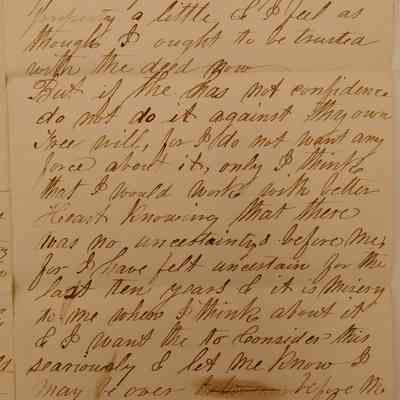 Property a little & I feel as
though I ought to be trusted
with the deed now
But if the has not confidence
do not do it against thy own
Free will, for I do not want any
force about it, only I think
that I would work with better
Heart Knowing that there
was no uncertaintys before me,
for I have felt uncertain for the
last ten years & it is misery
to me when I think about it
& I want the to Consider this
seariously & let me Know I
may be over before